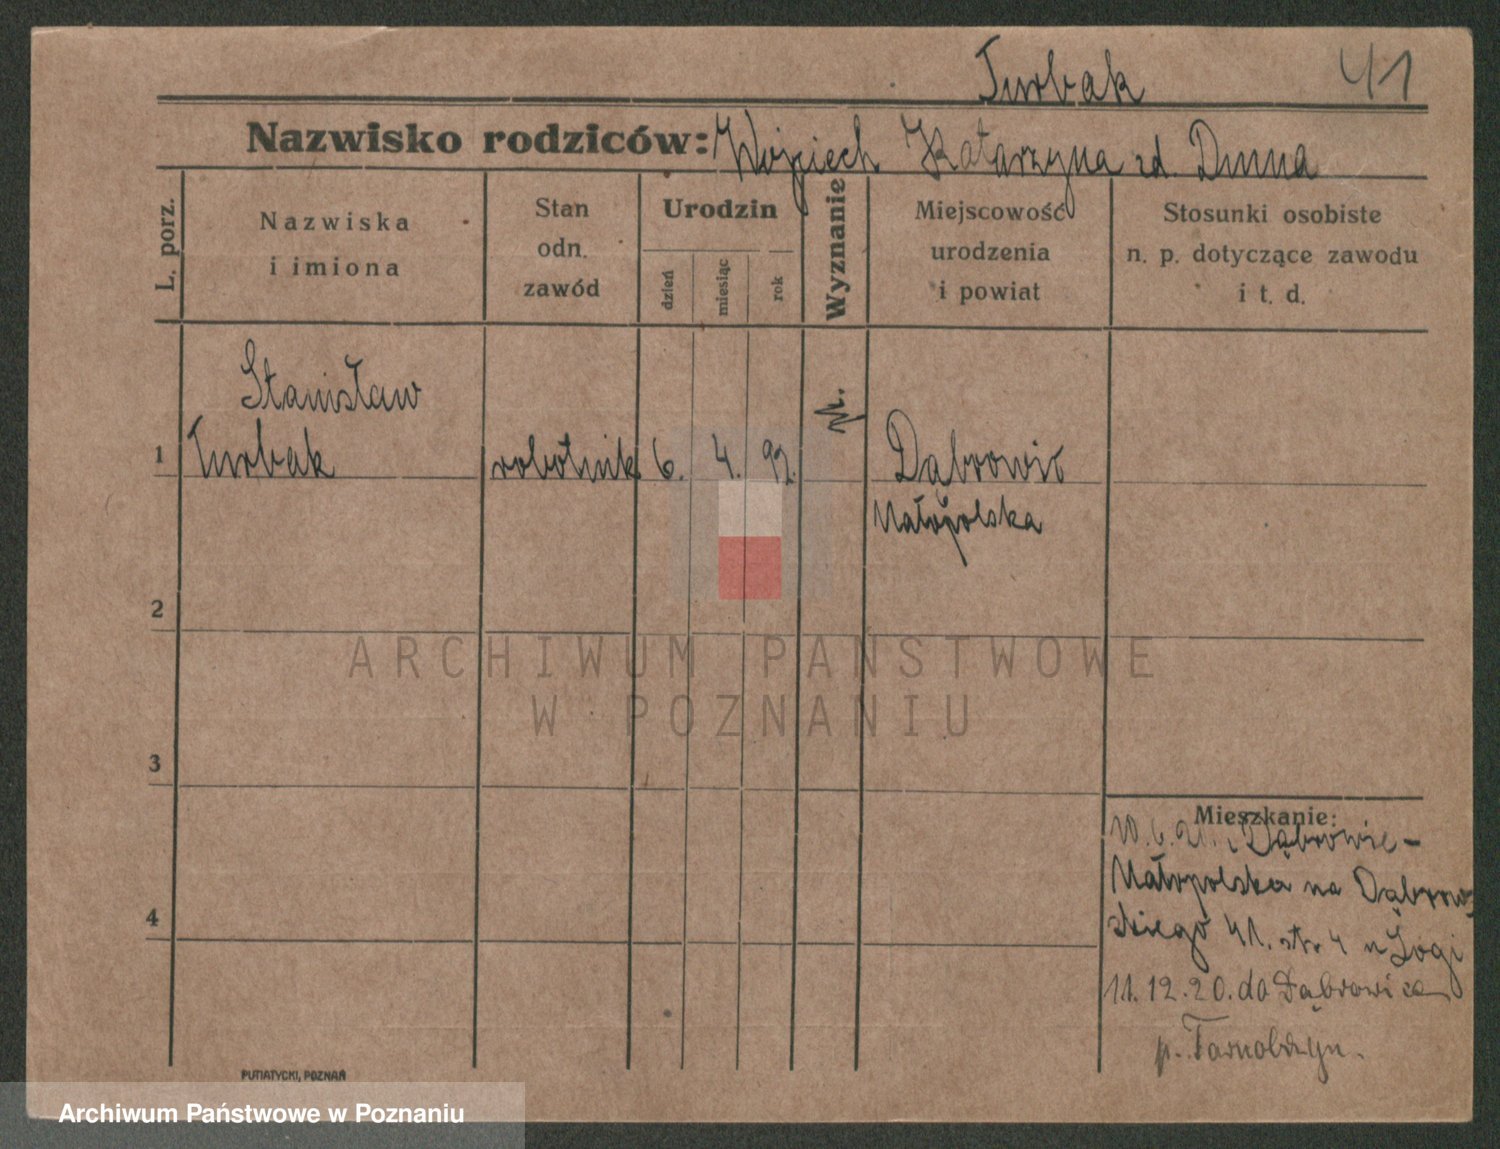 Turbak 41
Nazwisko rodziców: Wojciech Katarzyna zd. Duma
L. porz.
Nazwiska
i imiona
Stan
odn.
zawód
Urodzin
dzień
miesiąc
rok
Wyznanie
Miejscowość
urodzenia
i powiat
Stosunki osobiste
n. p. dotyczące zawodu
i t. d.
Stanisław
1 Turbak robotnik 6. 4. 92. Dąbrowic
Małopolska
2
ARCHIWUM PAŃSTWOWE
W POZNANIU
3
Mieszkanie:
10.6.20. Dąbrowic-
Małopolska na Dąbrow-
skiego 41. str. 4 u
4
11.12.20. do Dąbrowica
p. Tarnobrzyn.
PUTIATYCKI, POZNAŃ
Archiwum Państwowe w Poznaniu